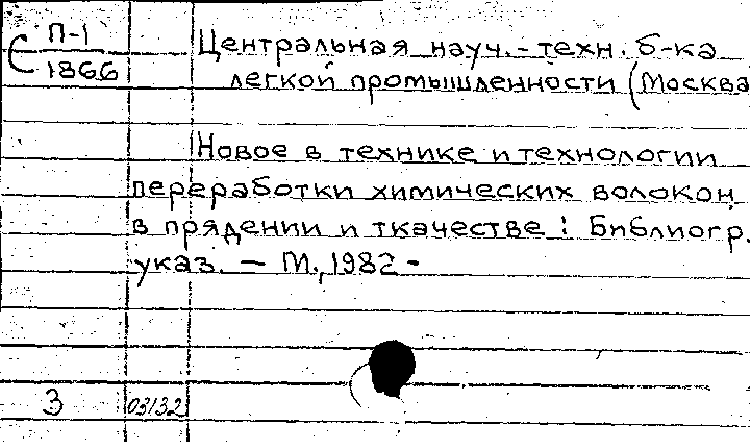 С П-1 Центральная науч.-техн. б-ка
1866 легкой промышленности (Москва
Новое в технике и технологии
переработки химических волокон
в прядении и ткачестве: Библиогр.
указ. — М., 1982 -
3 03132